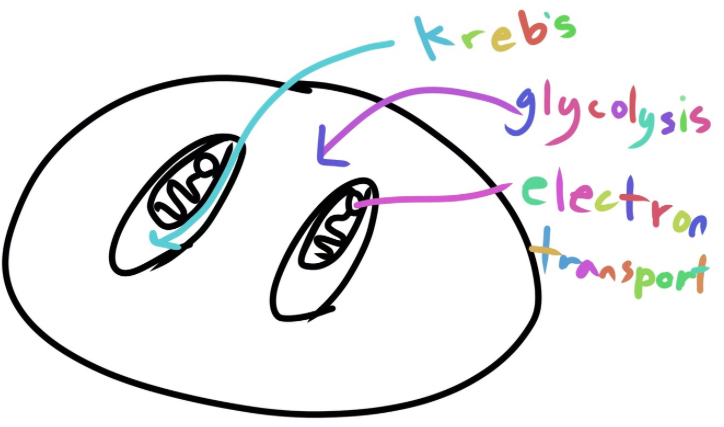 kreb's
glycolysis
electron
transport